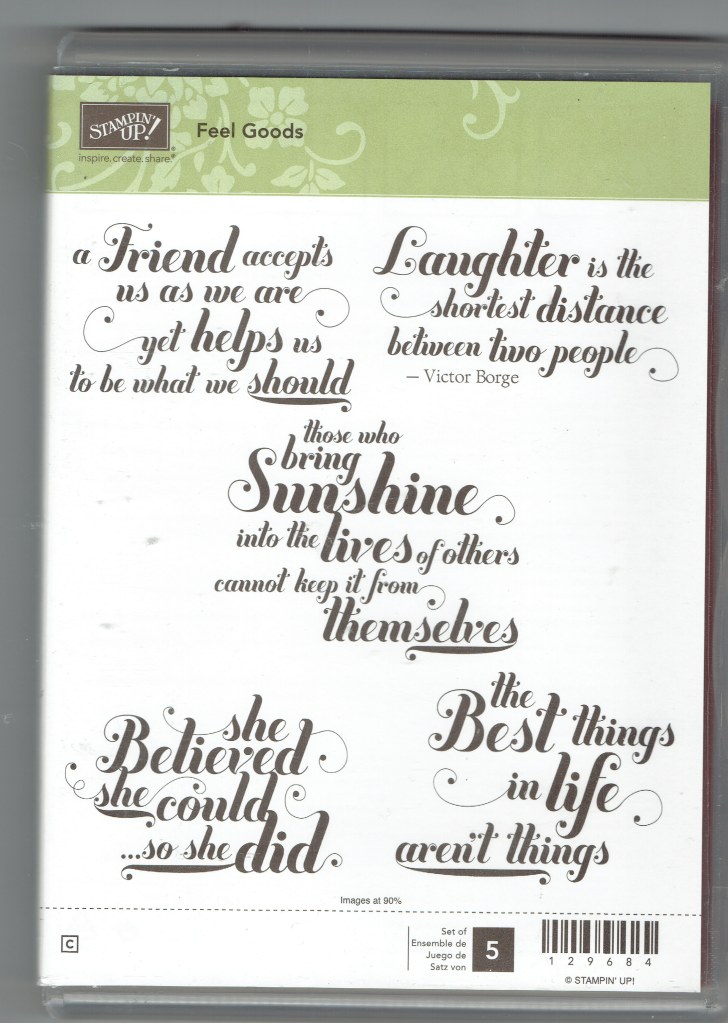 STAMPIN' UP!®
inspire.create.share.®
Feel Goods
a Friend accepts
us as we are
yet helps us
to be what we should
Laughter is the
shortest distance
between two people
— Victor Borge
those who
bring
Sunshine
into the lives of others
cannot keep it from
themselves
she
Believed
she could
...so she did
the
Best things
in life
aren't things
Images at 90%
C
Set of
Ensemble de
Juego de
Satz von
5
129684
© STAMPIN' UP!